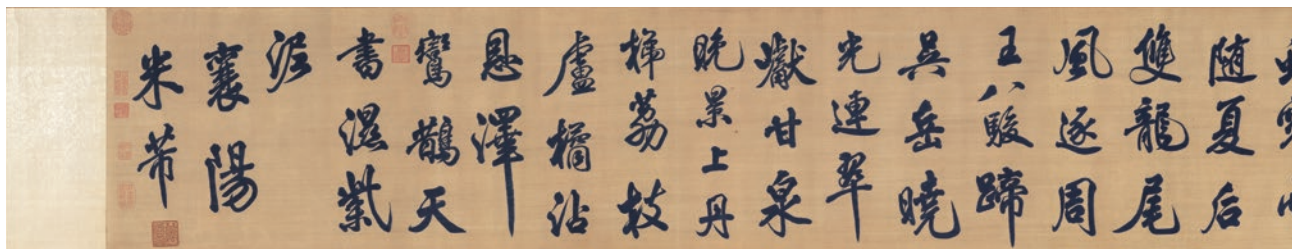 随夏后
雙龍尾
風逐周
王八駿蹄
吳岳曉
光連翠
巘甘泉
晚景上丹
梯荔枝
盧橘沾
恩澤
鸞鵲天
書濕紫
泥
襄陽
米芾